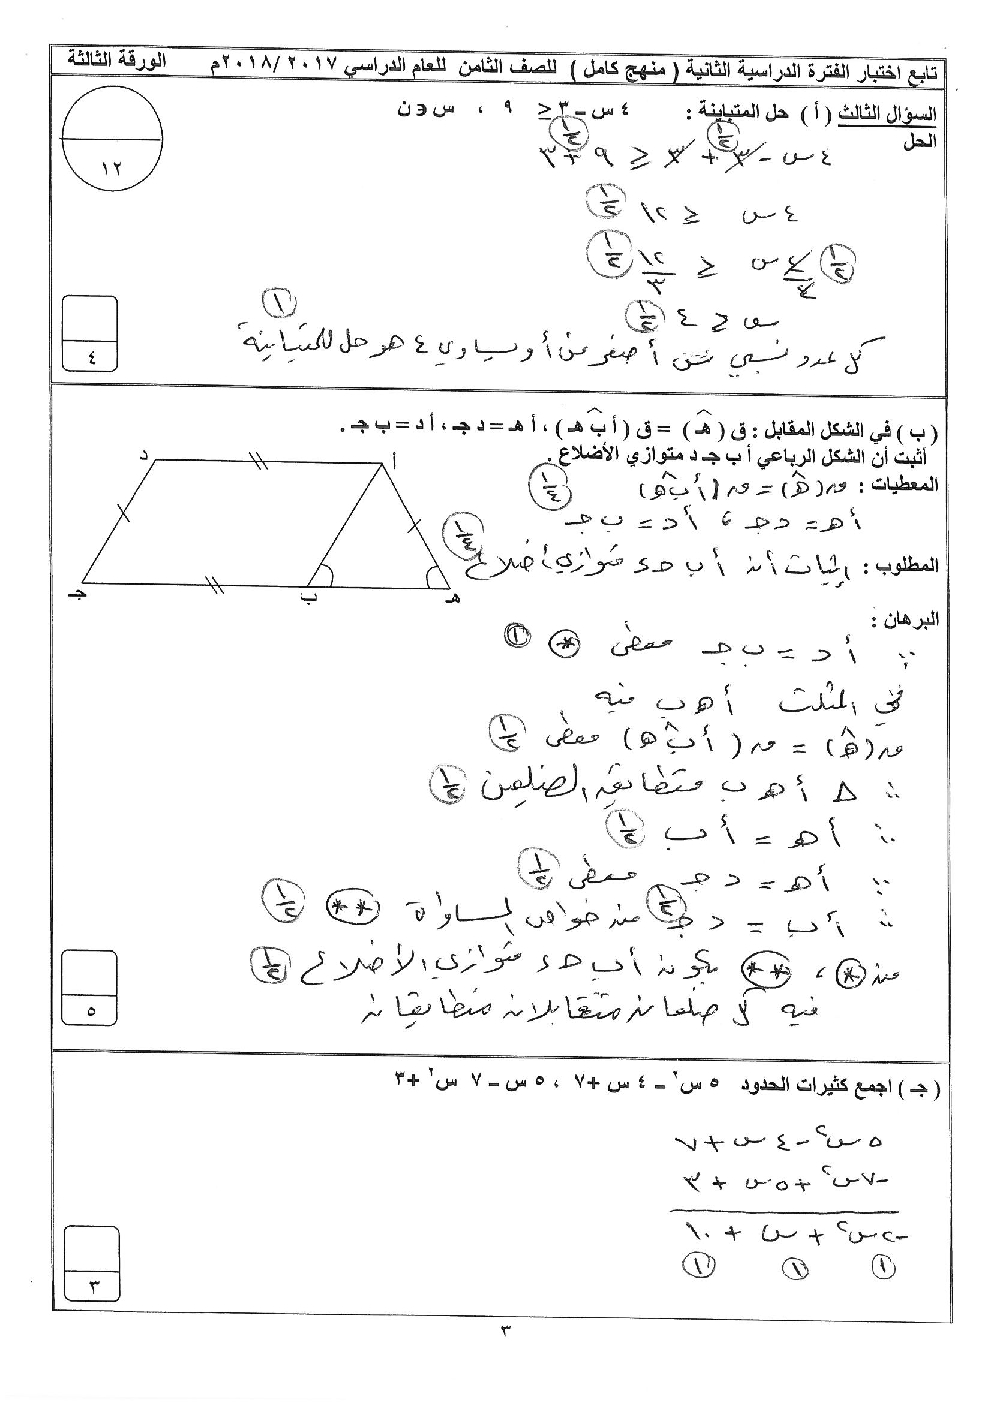 تابع اختبار الفترة الدراسية الثانية ( منهج كامل ) للصف الثامن للعام الدراسي ٢٠١٧ /٢٠١٨م الورقة الثالثة
السؤال الثالث ( أ ) حل المتباينة : ٤ س – ٣ ≥ ٩ ، س ∈ ن
١٢
الحل
٤س - ٣ + ٣ ≥ ٩ + ٣ ١/٢ ١/٢
٤س ≥ ١٢ ١/٢
١/٢ ٤س/٤ ≥ ١٢/٣ ١/٢
س ≥ ٤ ١/٢
١
كل عدد نسبي أصغر من أو يساوي ٤ هو حل للمتباينة
٤
( ب ) في الشكل المقابل : ق ( هـ ) = ق ( أ ب هـ ) ، أ هـ = د جـ ، أ د = ب جـ .
أثبت أن الشكل الرباعي أ ب جـ د متوازي الأضلاع .
المعطيات : ق(هـ) = ق(أ ب هـ)
أ هـ = د جـ ، أ د = ب جـ
المطلوب : إثبات أن أ ب جـ د متوازي أضلاع
د أ جـ ب هـ
البرهان :
∵ أ د = ب جـ معطى * ١
في المثلث أ هـ ب فيه
ق(هـ) = ق(أ ب هـ) معطى ١/٢
∴ △ أ هـ ب متطابق الضلعين ١/٢
∴ أ هـ = أ ب ١/٢
∵ أ هـ = د جـ معطى ١/٢
∴ أ ب = د جـ ١/٢ من خواص المساواة ** ١/٢
من * ، ** يكون أ ب جـ د متوازي الأضلاع ١/٢
فيه كل ضلعان متقابلان متطابقان
٥
( جـ ) اجمع كثيرات الحدود ٥ س٢ – ٤ س + ٧ ، ٥ س – ٧ س٢ + ٣
٥س٢ - ٤س + ٧
-٧س٢ + ٥س + ٣
-٢س٢ + س + ١٠
١ ١ ١
٣
٣